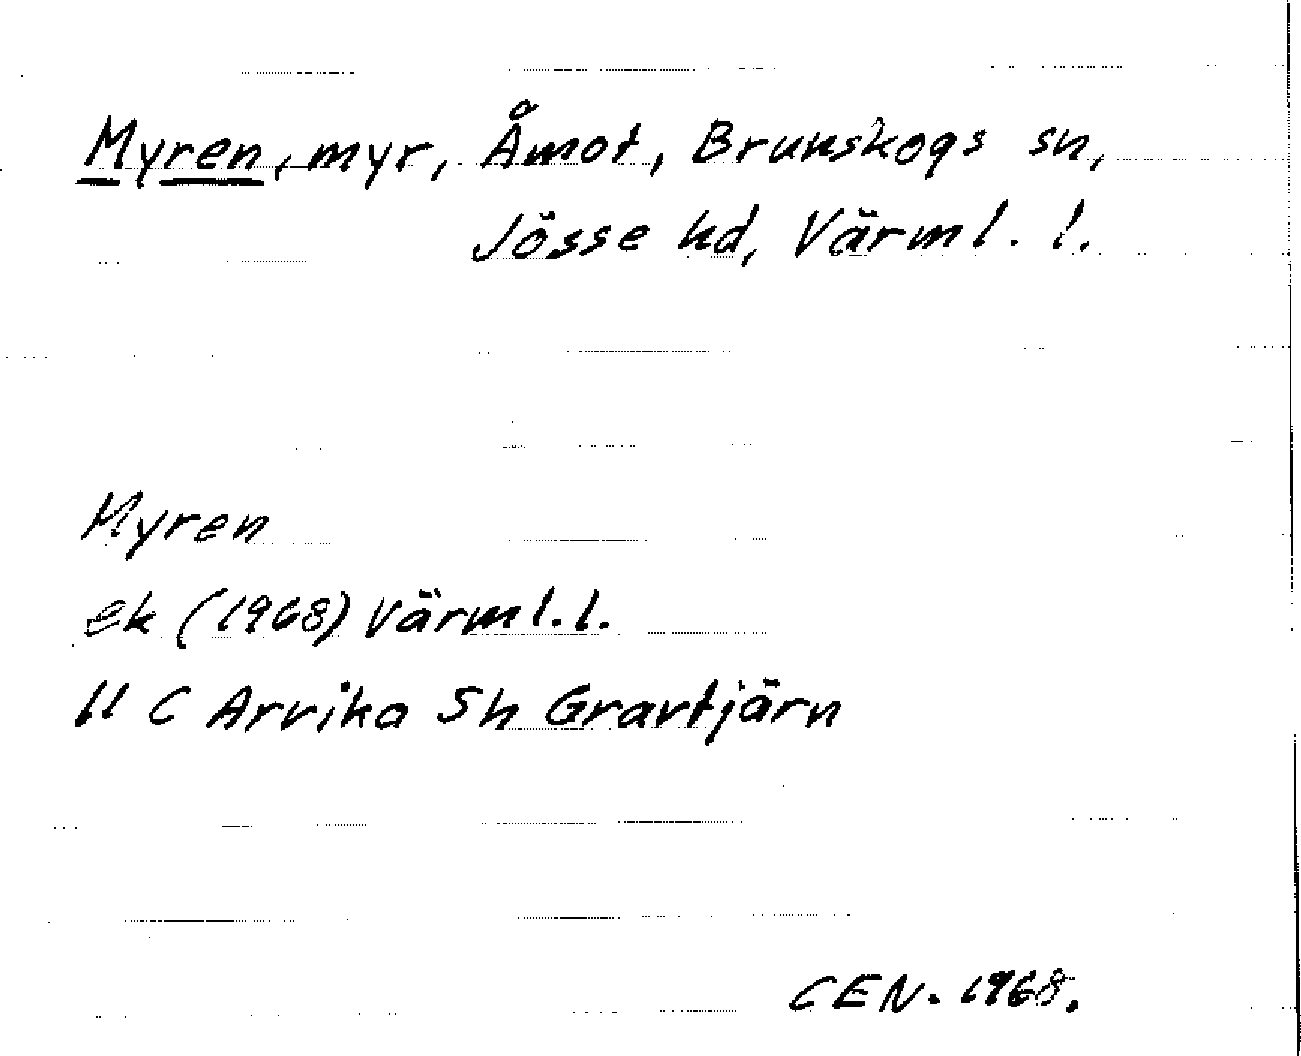 Myren, myr, Åmot, Brunskogs sn,
Jösse hd, Värml. l.
Myren
ek (1968) Värml. l.
11 C Arvika Sh Gravtjärn
CEN. 1968.